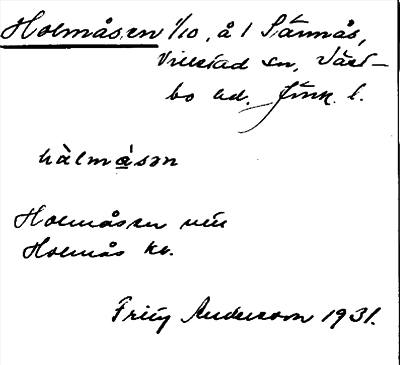 Holmåsen 1/10, å 1 Sännås,
Villstad sn, Väst-
bo hd. Jönk. l.
hàlmåsən
Holmåsen vill
Holmås kv.
Fritz Andersson 1931.